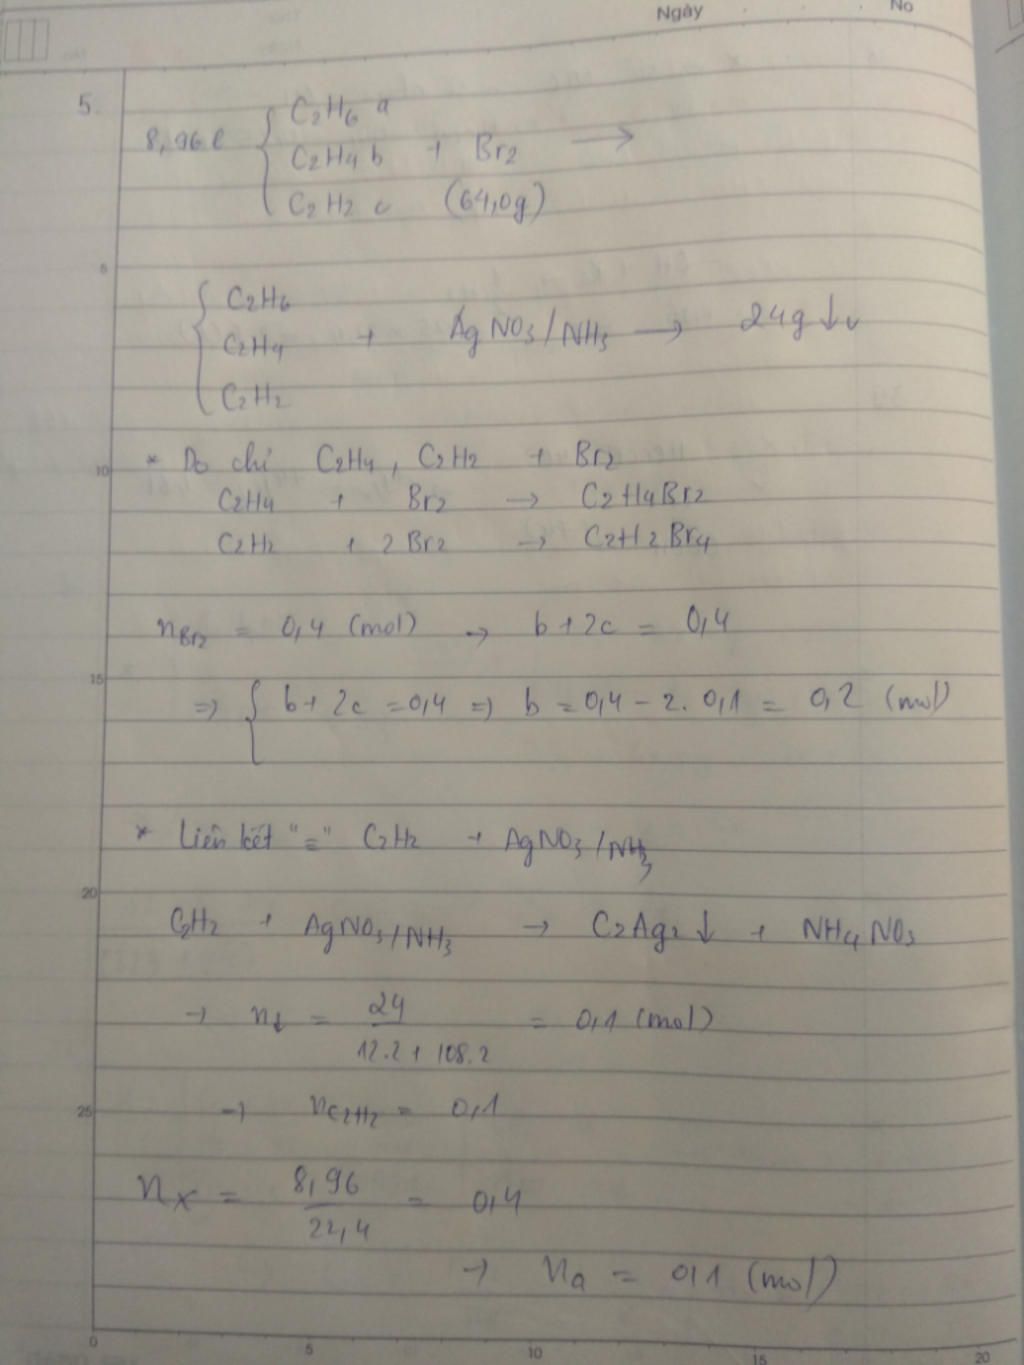 Ngày No
5.
8,96l { C2H6 a
C2H4 b + Br2 →
C2H2 c (64,0g)
5
{ C2H6
C2H4 + AgNO3/NH3 → 24g ↓
C2H2
10 * Do chỉ C2H4, C2H2 + Br2
C2H4 + Br2 → C2H4Br2
C2H2 + 2Br2 → C2H2Br4
nBr2 = 0,4 (mol) → b+2c = 0,4
15
⇒ { b+2c = 0,4 ⇒ b = 0,4 - 2. 0,1 = 0,2 (mol)
* Liên kết "≡" C2H2 + AgNO3/NH3
20
C2H2 + AgNO3/NH3 → C2Ag2 ↓ + NH4NO3
→ n↓ = 24 / 12.2 + 108.2 = 0,1 (mol)
25 → nC2H2 = 0,1
nX = 8,96 / 22,4 = 0,4
→ na = 0,1 (mol)
0 5 10 15 20